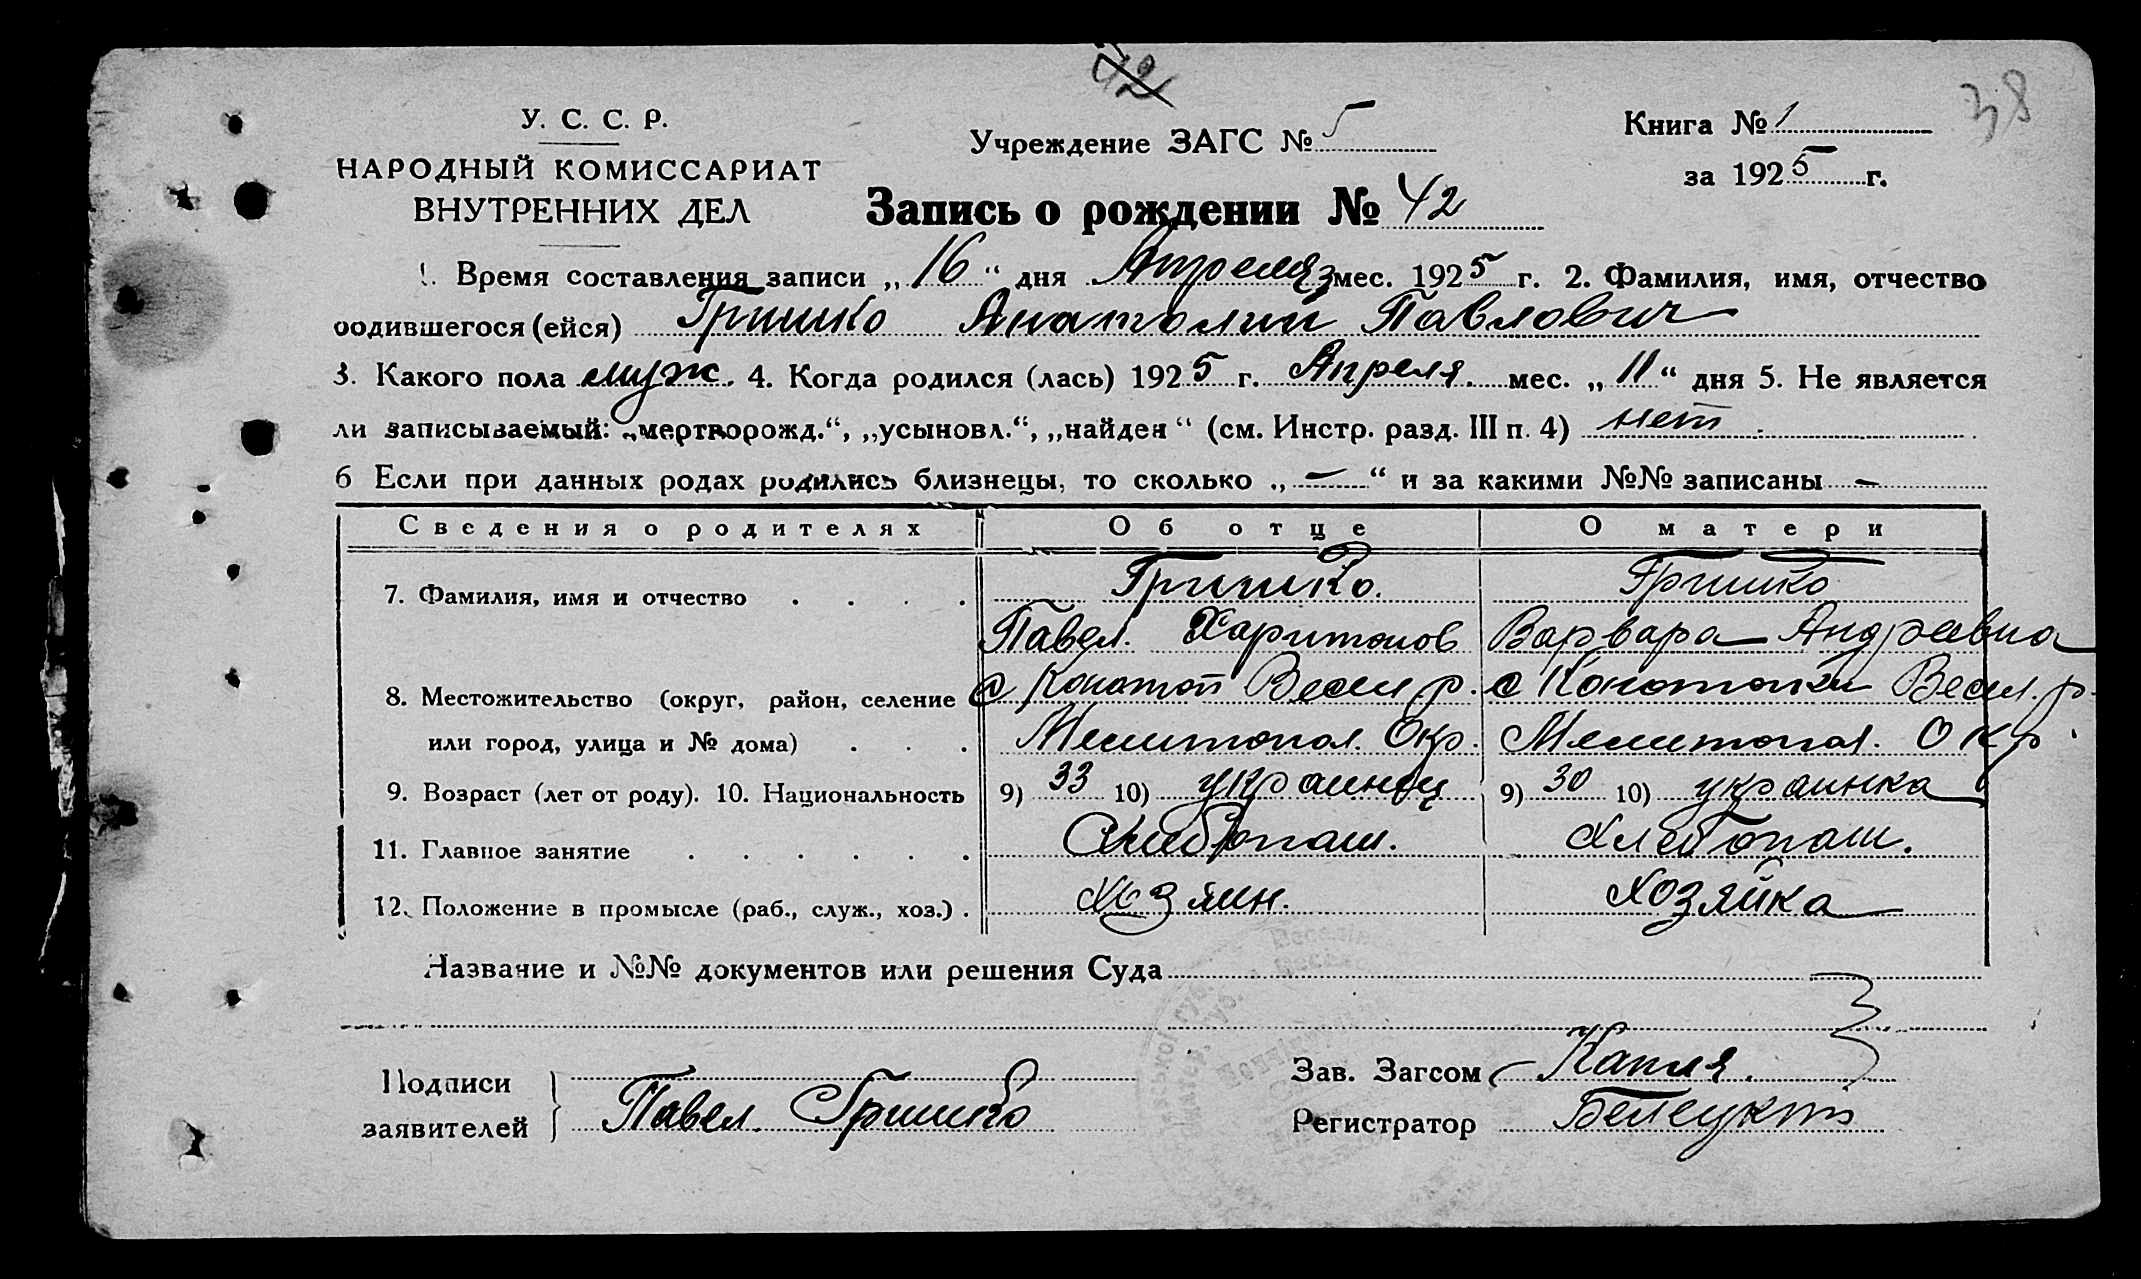 42
38
У. С. С. Р.
НАРОДНЫЙ КОМИССАРИАТ
ВНУТРЕННИХ ДЕЛ
Учреждение ЗАГС № 5
Книга № 1
за 1925 г.
Запись о рождении № 42
1. Время составления записи „16“ дня Апреля мес. 1925 г. 2. Фамилия, имя, отчество
родившегося (ейся) Гришко Анатолий Павлович
3. Какого пола муж. 4. Когда родился (лась) 1925 г. Апреля. мес. „11“ дня 5. Не является
ли записываемый: „мертворожд.“, „усыновл.“, „найден“ (см. Инстр. разд. III п. 4) нет
6 Если при данных родах родились близнецы, то сколько „—“ и за какими №№ записаны —
Сведения о родителях Об отце О матери
7. Фамилия, имя и отчество Гришко. Гришко
Павел. Харитонов Варвара Андреевна
8. Местожительство (округ, район, селение с Конотоп Весел р. с Весел. р.
или город, улица и № дома) Мелитопол. Окр. Мелитопол. Окр.
9. Возраст (лет от роду). 10. Национальность 9) 33 10) украинец 9) 30 10) украинка
11. Главное занятие Хлебопаш. Хлебопаш.
12. Положение в промысле (раб., служ., хоз.) Хозяин. Хозяйка
Название и №№ документов или решения Суда
Подписи
заявителей
Павел. Гришко
Зав. Загсом Капля.
Регистратор